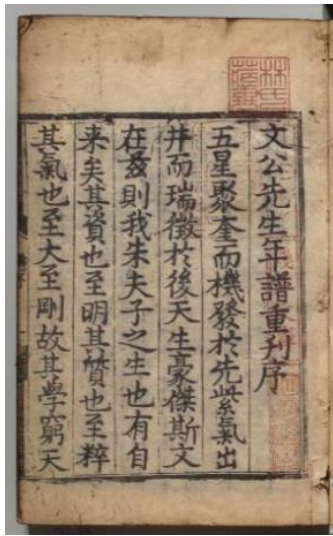 文公先生年譜重刋序
五星聚奎而機發於先紫氣出
井而瑞徵於後天生豪傑斯文
在兹則我朱夫子之生也有自
来矣其資也至明其質也至粹
其氣也至大至剛故其學窮天
林氏
藏書